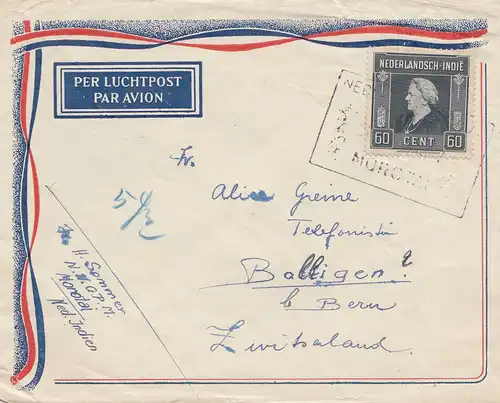 PER LUCHTPOST
PAR AVION
NEDERLANDSCH-INDIË
60 CENT 60
MOROTAI
Fr.
Alice Greine
Telefonistin
Balligen
b Bern
Zwitserland
5/2
H. Sommer
N.N.G.P.M.
Morotai
Ned. Indien